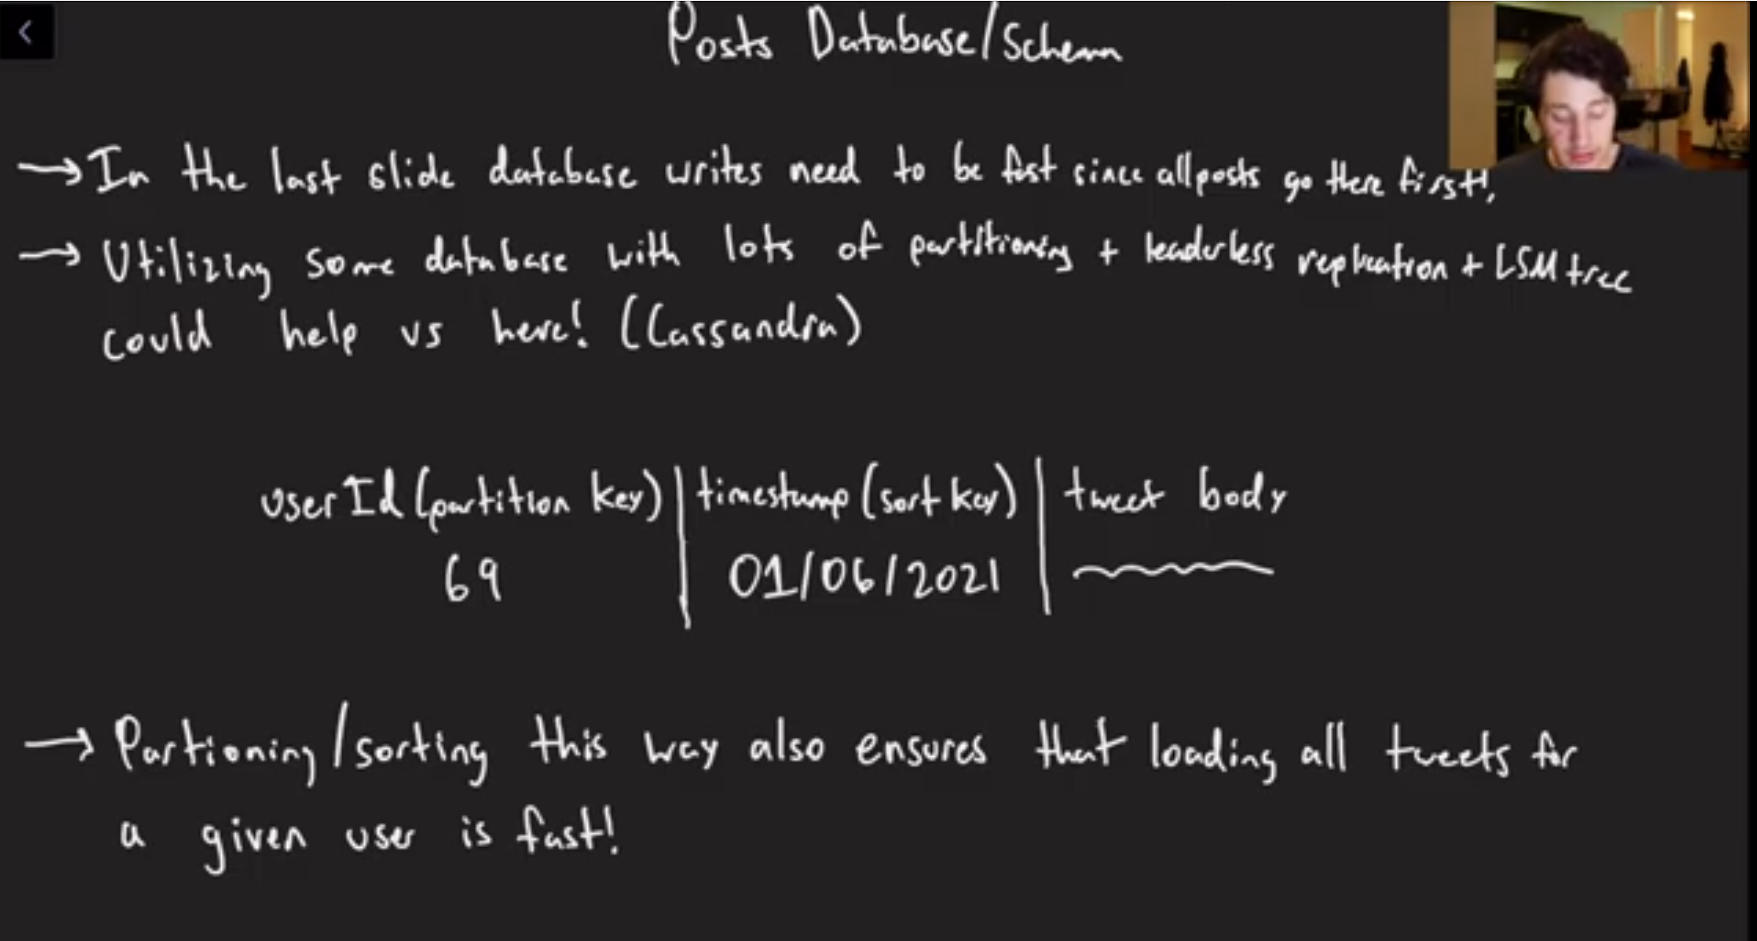 Posts Database/Schema
→ In the last slide database writes need to be fast since all posts go there first!
→ Utilizing some database with lots of partitioning + leaderless replication + LSM tree
could help us here! (Cassandra)
userId (partition key) | timestamp (sort key) | tweet body
69 | 01/06/2021 |
→ Partioning/sorting this way also ensures that loading all tweets for
a given user is fast!